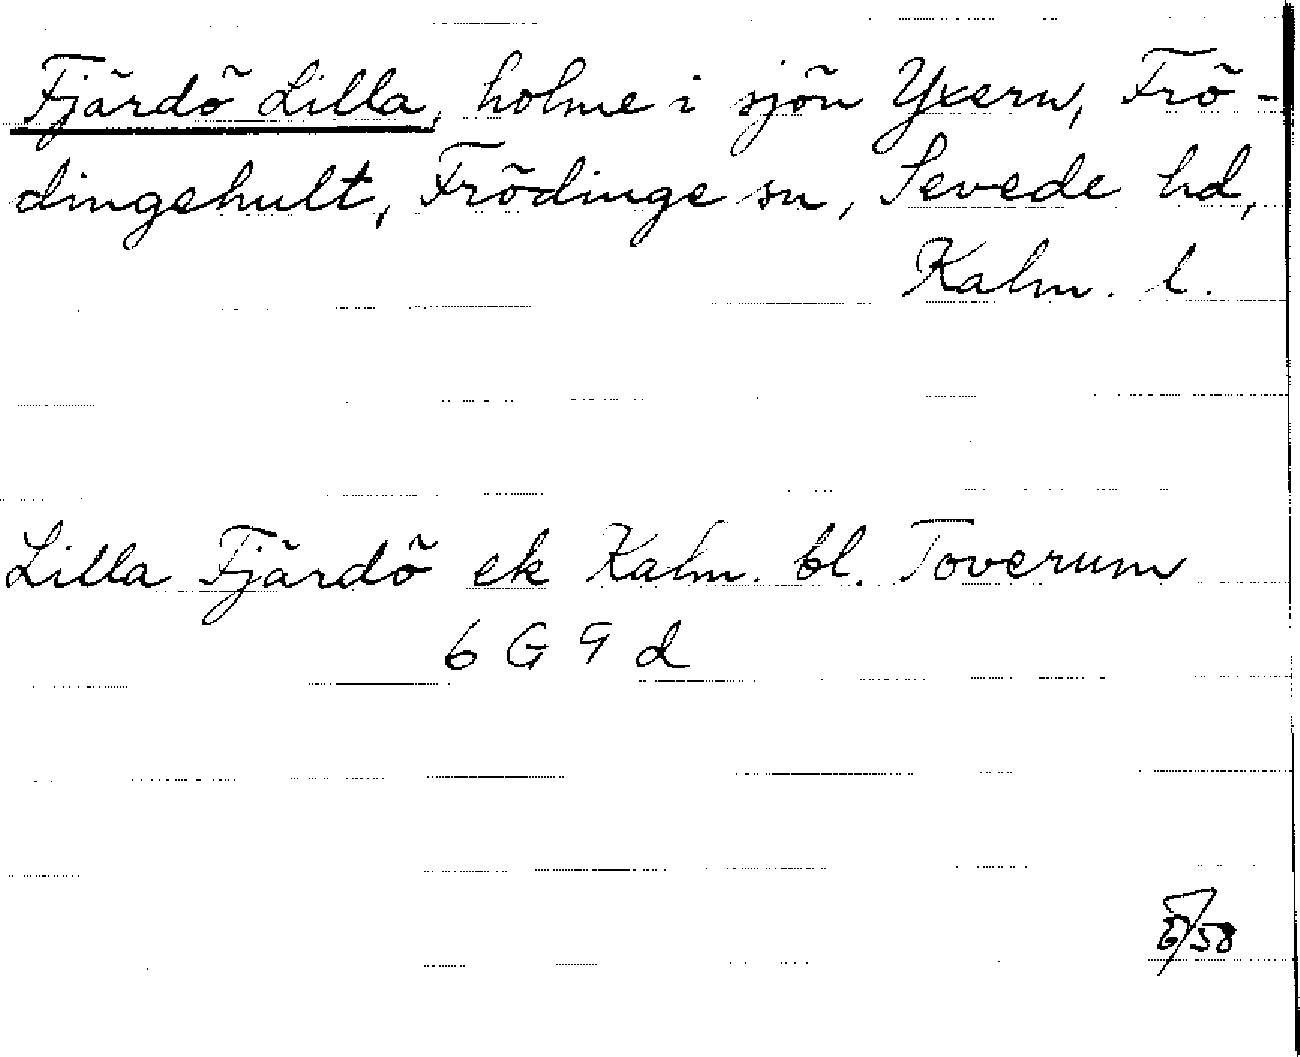 Fjärdö Lilla, holme i sjön Yxern, Frö-
dingehult, Frödinge sn, Sevede hd,
Kalm. l.
Lilla Fjärdö ek Kalm. bl. Toverum
6 G 9 d